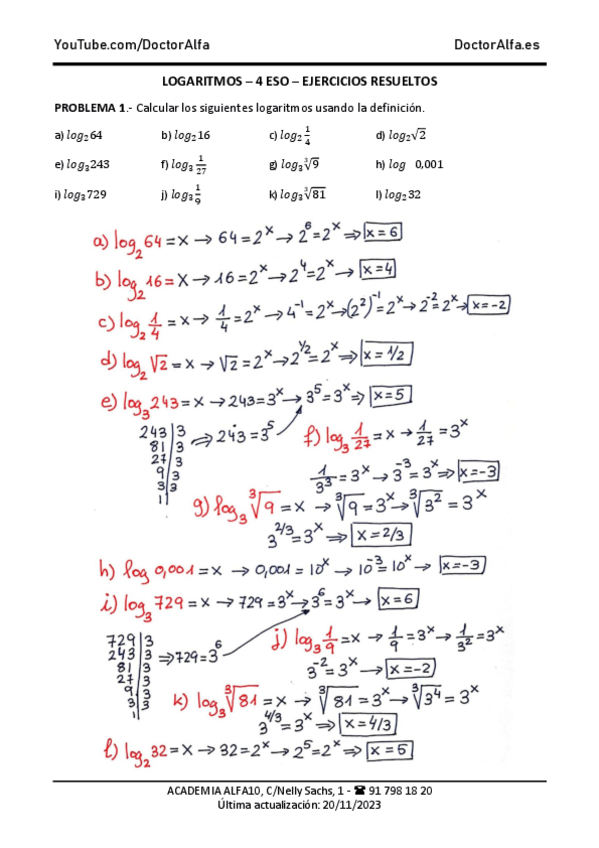 YouTube.com/DoctorAlfa DoctorAlfa.es
LOGARITMOS – 4 ESO – EJERCICIOS RESUELTOS
PROBLEMA 1.- Calcular los siguientes logaritmos usando la definición.
a) log₂64 b) log₂16 c) log₂ 1/4 d) log₂√2
e) log₃243 f) log₃ 1/27 g) log₃∛9 h) log 0,001
i) log₃729 j) log₃ 1/9 k) log₃∛81 l) log₂32
a) log₂64 = x → 64 = 2ˣ → 2⁶ = 2ˣ ⇒ x = 6
b) log₂16 = x → 16 = 2ˣ → 2⁴ = 2ˣ → x = 4
c) log₂ 1/4 = x → 1/4 = 2ˣ → 4⁻¹ = 2ˣ → (2²)⁻¹ = 2ˣ → 2⁻² = 2ˣ → x = -2
d) log₂√2 = x → √2 = 2ˣ → 2^1/2 = 2ˣ ⇒ x = 1/2
e) log₃243 = x → 243 = 3ˣ → 3⁵ = 3ˣ ⇒ x = 5
243 | 3 ⇒ 243 = 3⁵
81 | 3
27 | 3
9 | 3
3 | 3
1 |
f) log₃ 1/27 = x → 1/27 = 3ˣ
1/3³ = 3ˣ → 3⁻³ = 3ˣ ⇒ x = -3
g) log₃∛9 = x → ∛9 = 3ˣ → ∛3² = 3ˣ
3^2/3 = 3ˣ ⇒ x = 2/3
h) log 0,001 = x → 0,001 = 10ˣ → 10⁻³ = 10ˣ → x = -3
i) log₃729 = x → 729 = 3ˣ → 3⁶ = 3ˣ → x = 6
729 | 3 ⇒ 729 = 3⁶
243 | 3
81 | 3
27 | 3
9 | 3
3 | 3
1 |
j) log₃ 1/9 = x → 1/9 = 3ˣ → 1/3² = 3ˣ
3⁻² = 3ˣ → x = -2
k) log₃∛81 = x → ∛81 = 3ˣ → ∛3⁴ = 3ˣ
3^4/3 = 3ˣ ⇒ x = 4/3
l) log₂32 = x → 32 = 2ˣ → 2⁵ = 2ˣ ⇒ x = 5
ACADEMIA ALFA10, C/Nelly Sachs, 1 - ☎ 91 798 18 20
Última actualización: 20/11/2023